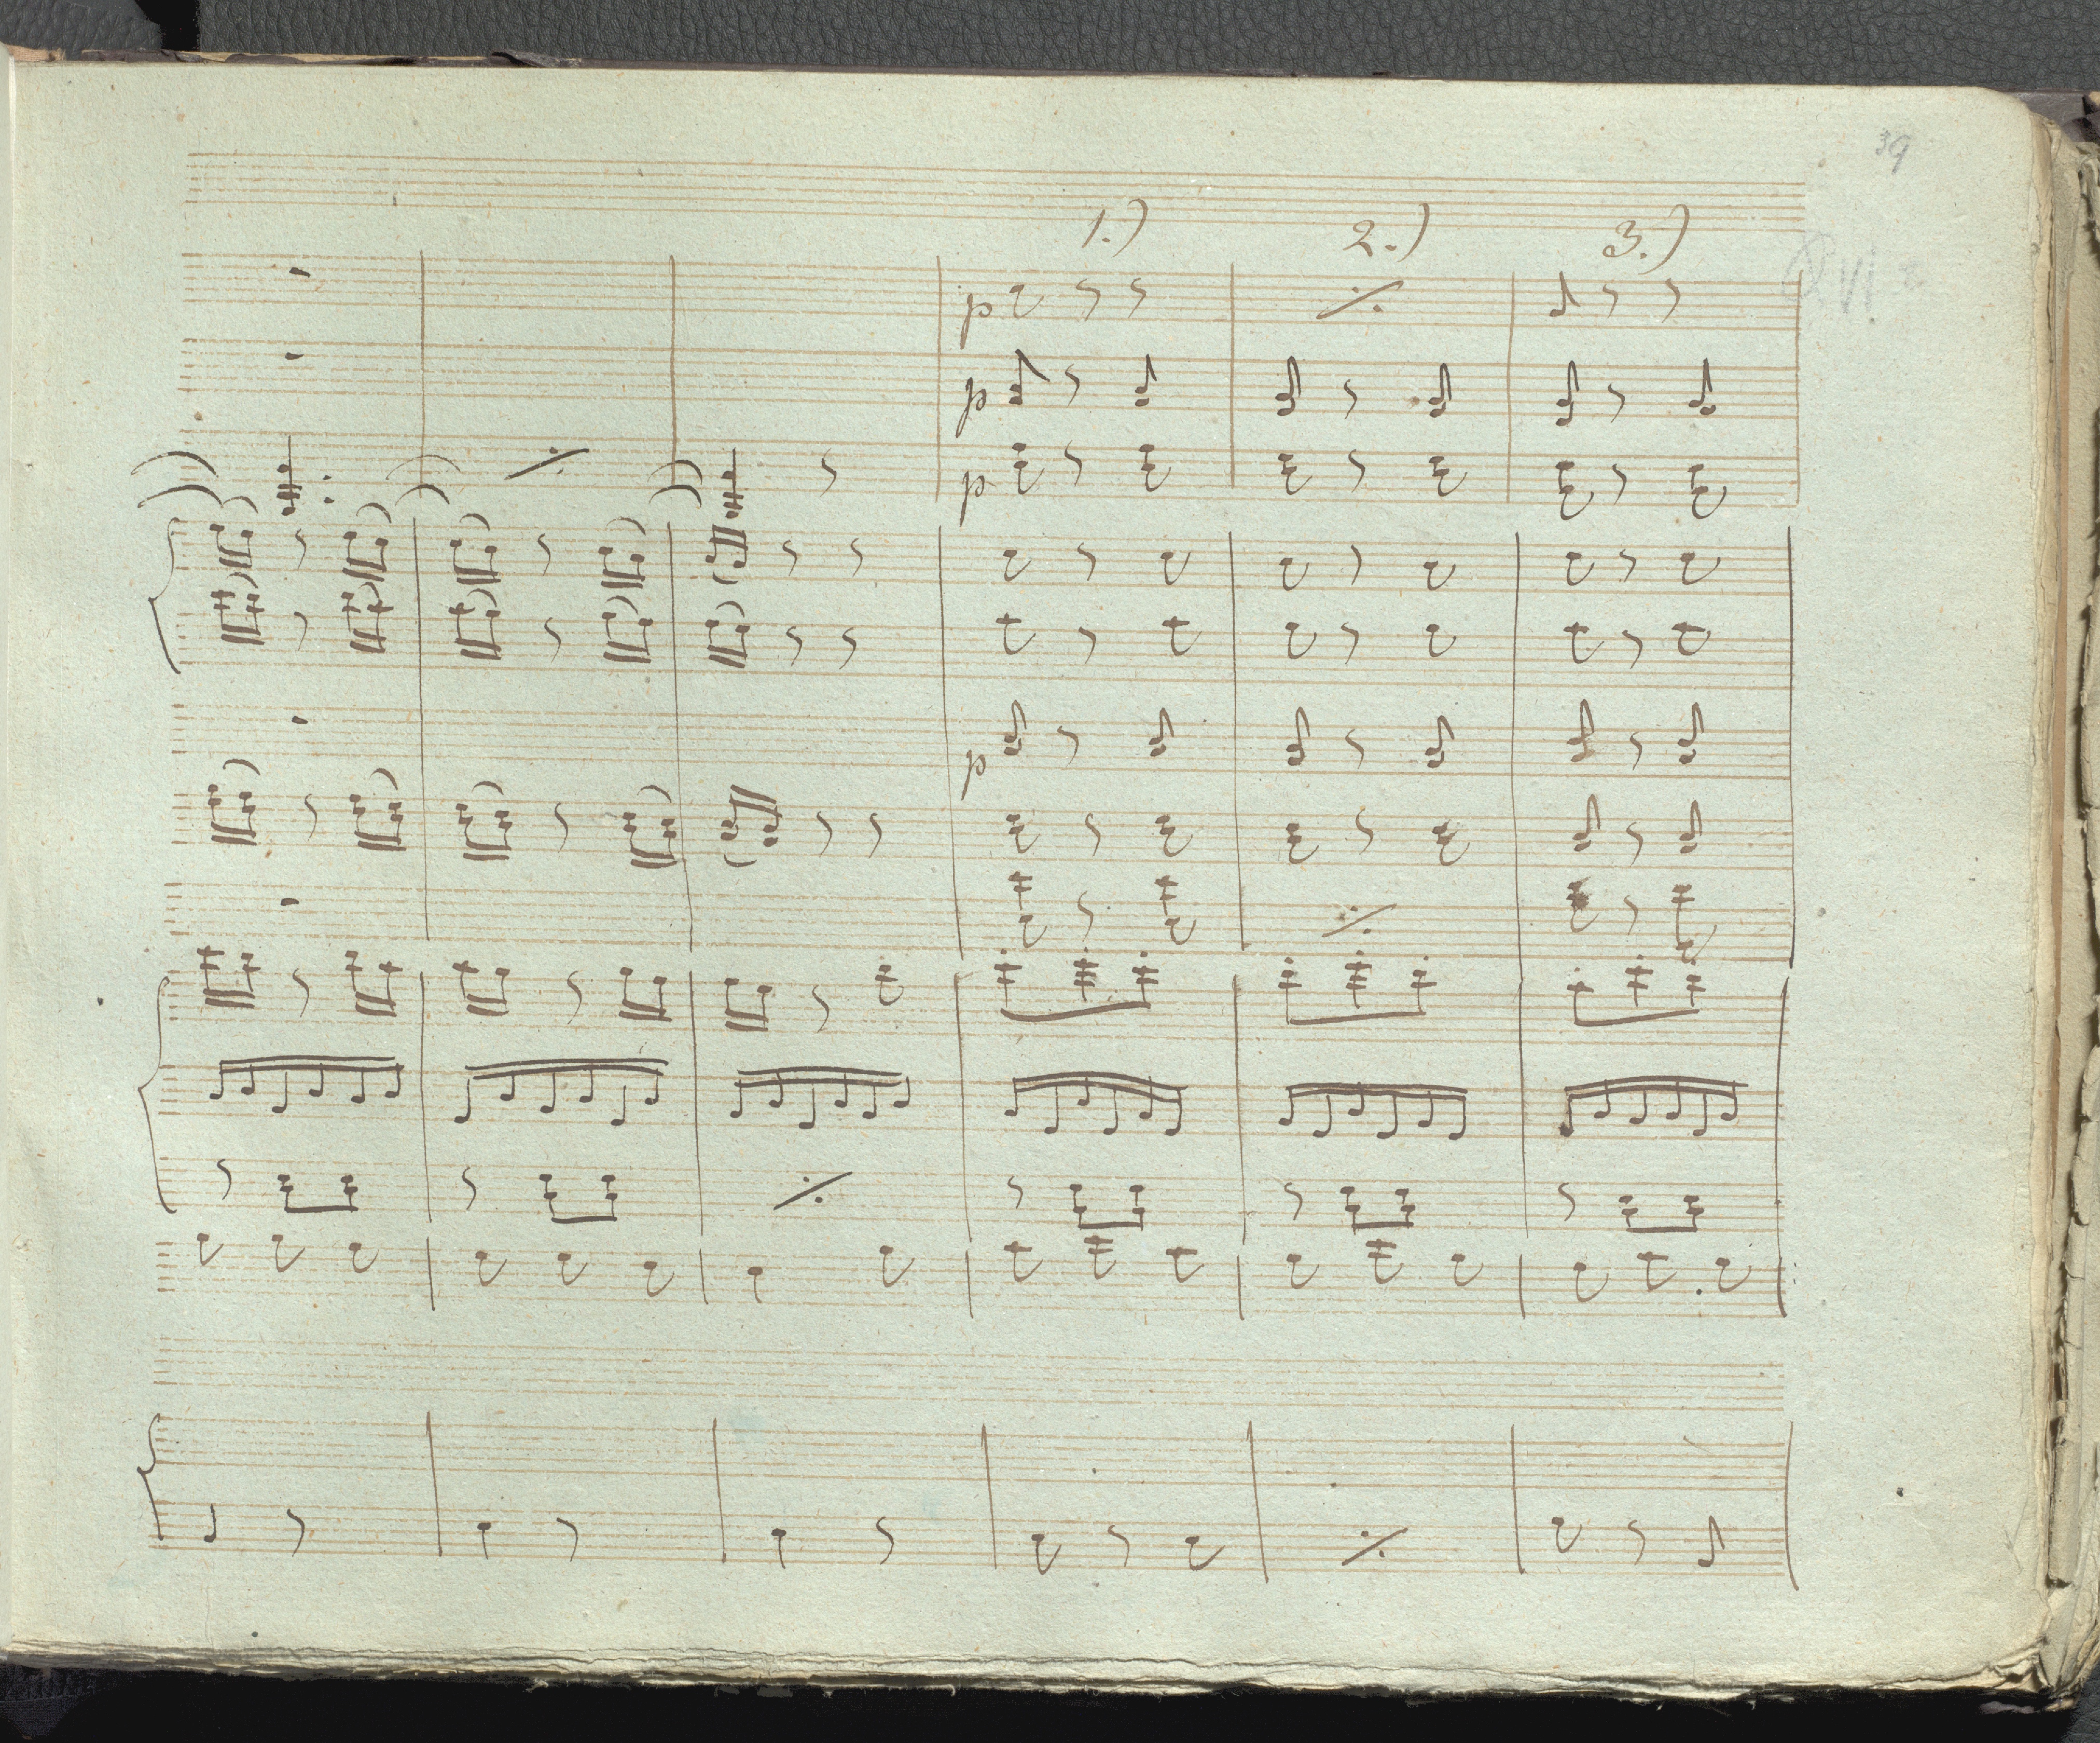 39
1.) 2.) 3.)
p
p
p
p